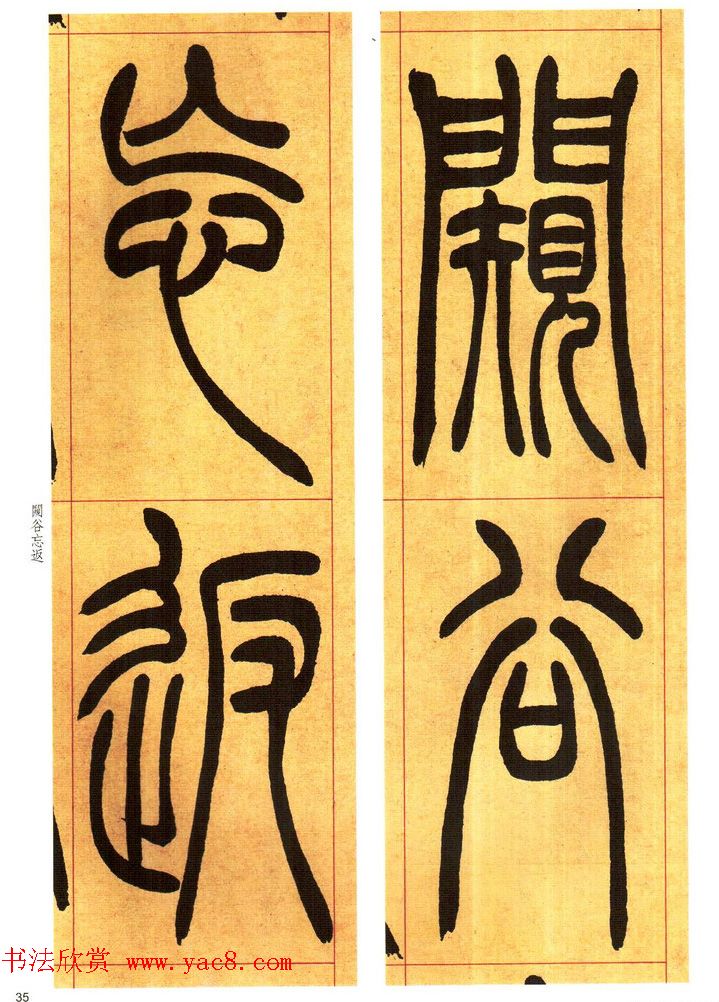 闚谷
忘返
闚谷忘返
书法欣赏 www.yac8.com
35